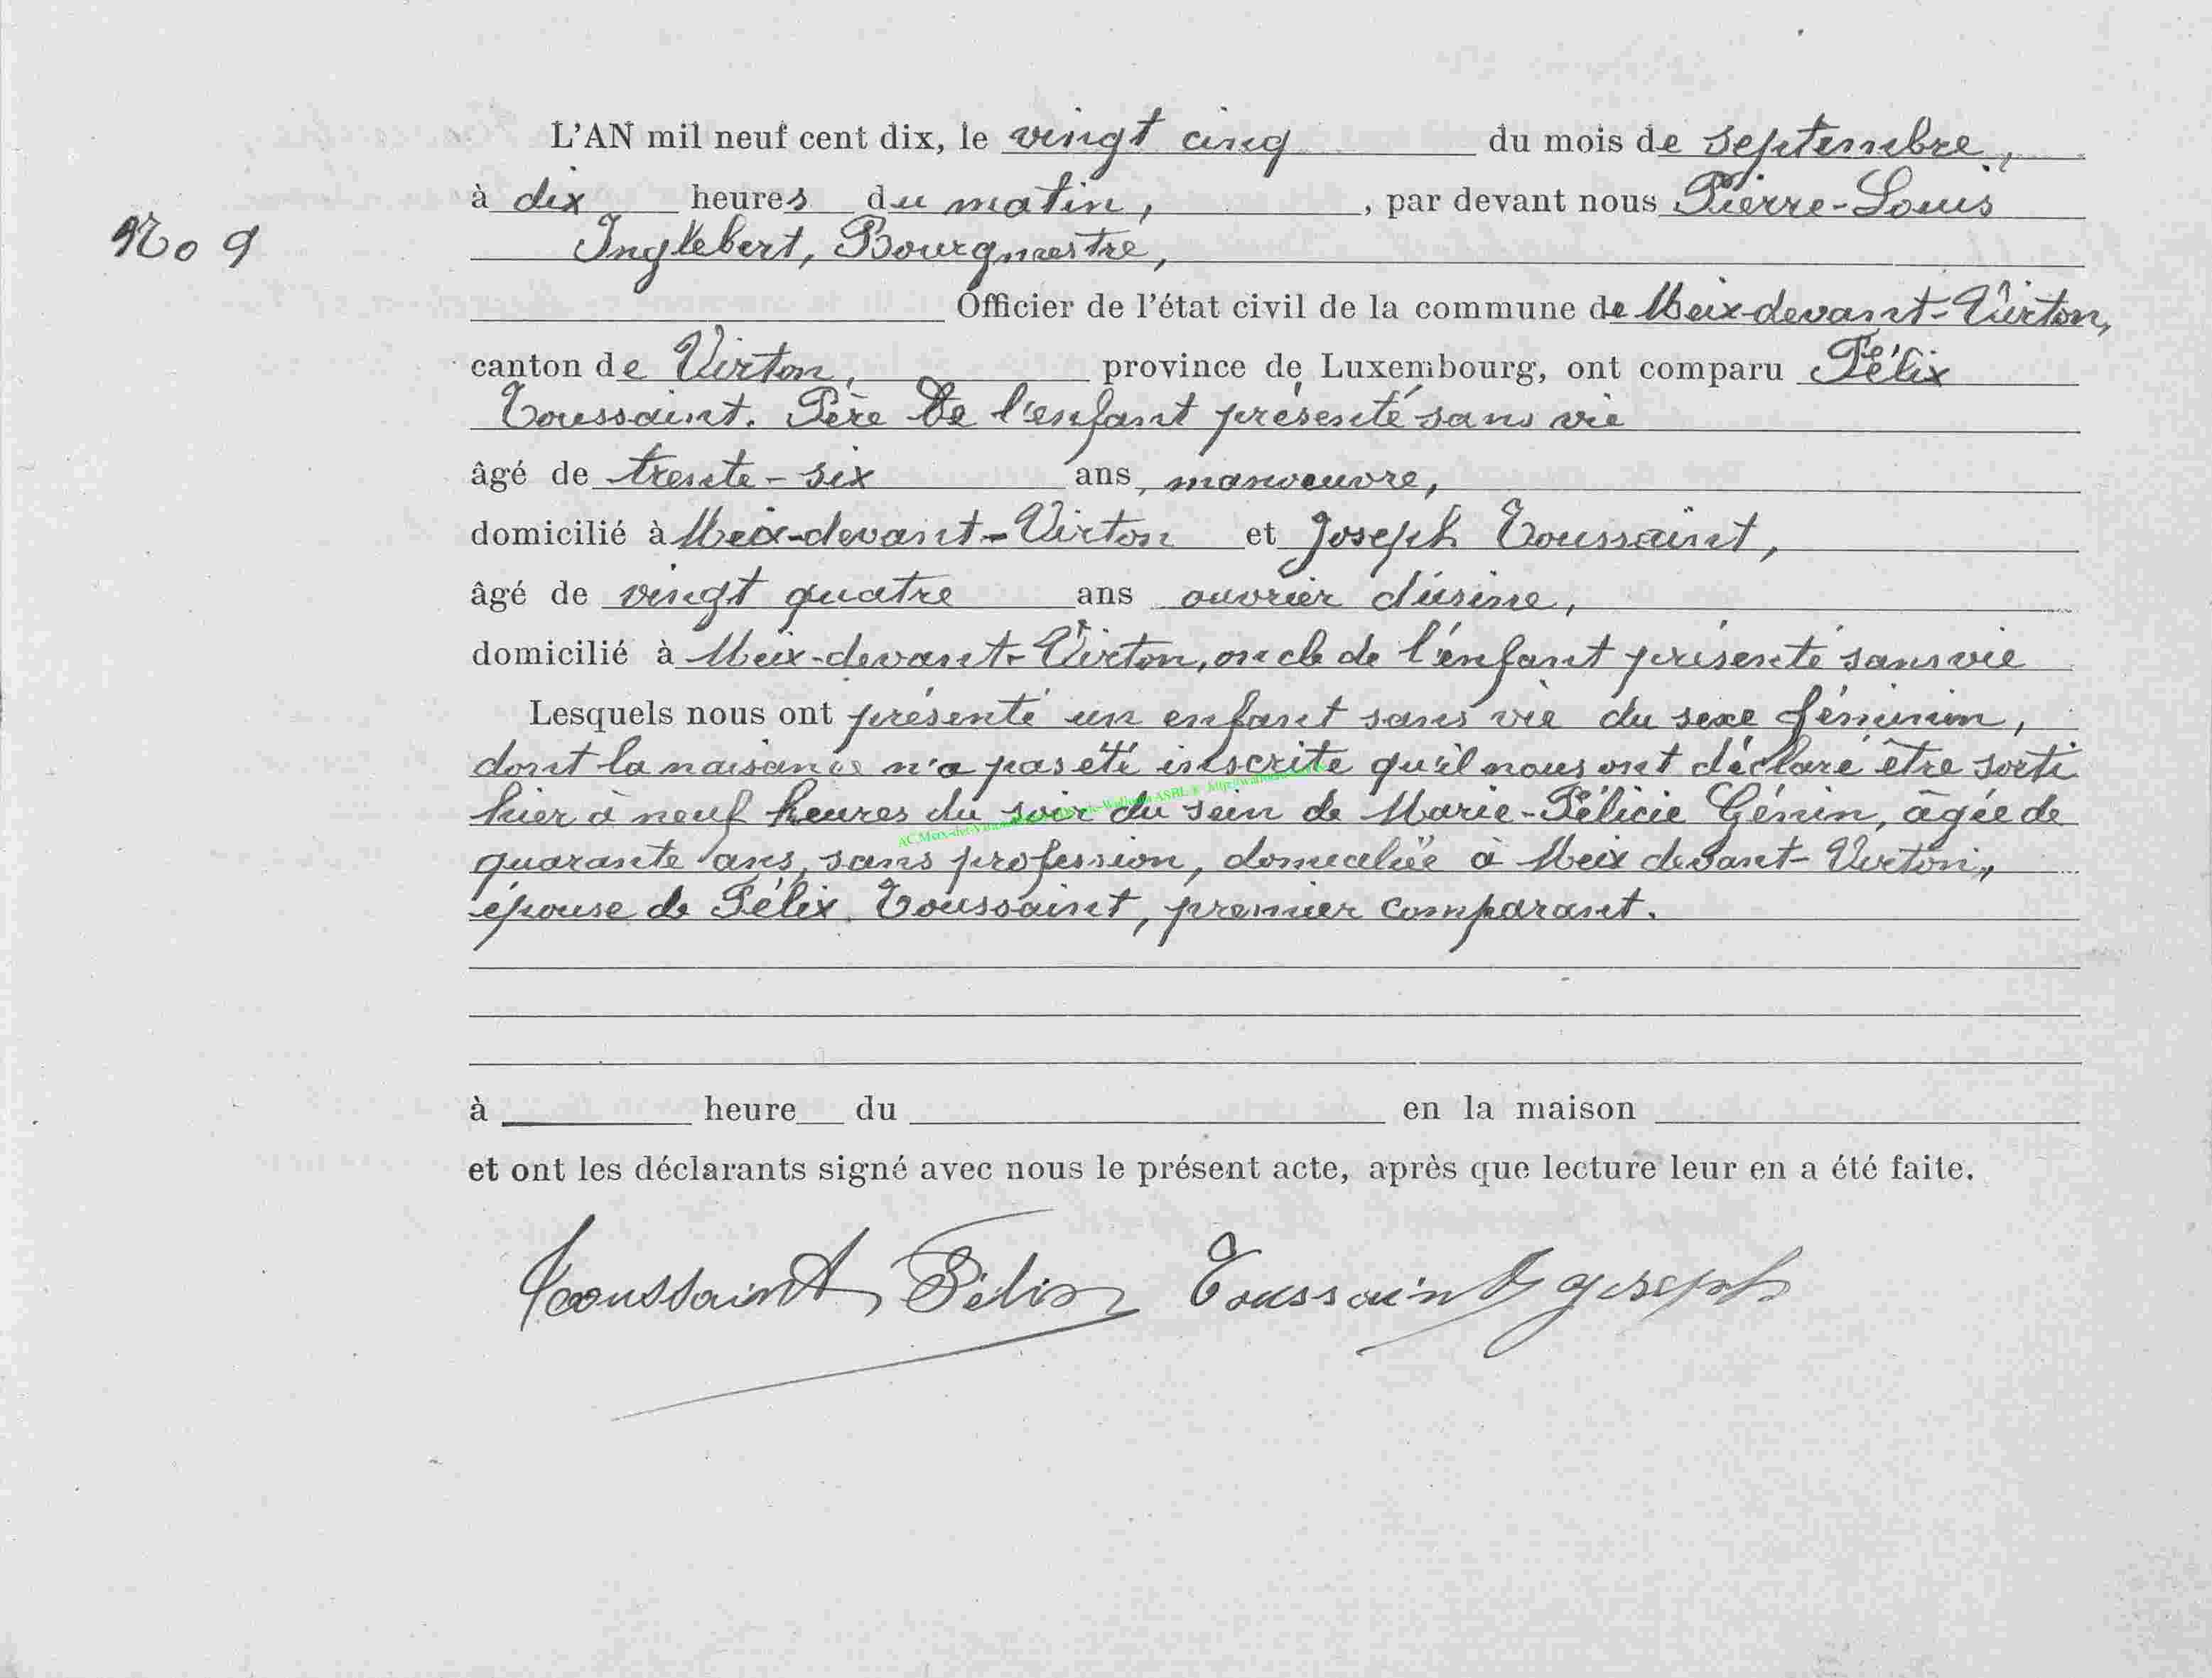 L'AN mil neuf cent dix, le vingt cinq du mois de septembre,
à dix heures du matin, , par devant nous Pierre-Louis
No 9
Inglebert, Bourgmestre,
Officier de l'état civil de la commune de Meix-devant-Virton,
canton de Virton, province de Luxembourg, ont comparu Félix
Toussaint. Père de l'enfant présenté sans vie
âgé de trente-six ans, manoeuvre,
domicilié à Meix-devant-Virton et Joseph Toussaint,
âgé de vingt quatre ans ouvrier d'usine,
domicilié à Meix-devant-Virton, oncle de l'enfant présenté sans vie
Lesquels nous ont présenté un enfant sans vie du sexe féminin,
dont la naisance n'a pas été inscrite qu'il nous ont déclaré être sorti
hier à neuf heures du soir du sein de Marie-Félicie Génin, âgée de
quarante ans, sans profession, domiciliée à Meix devant-Virton,
épouse de Félix Toussaint, premier comparant.
à heure du en la maison
et ont les déclarants signé avec nous le présent acte, après que lecture leur en a été faite.
Toussaint Félix Toussaint Joseph